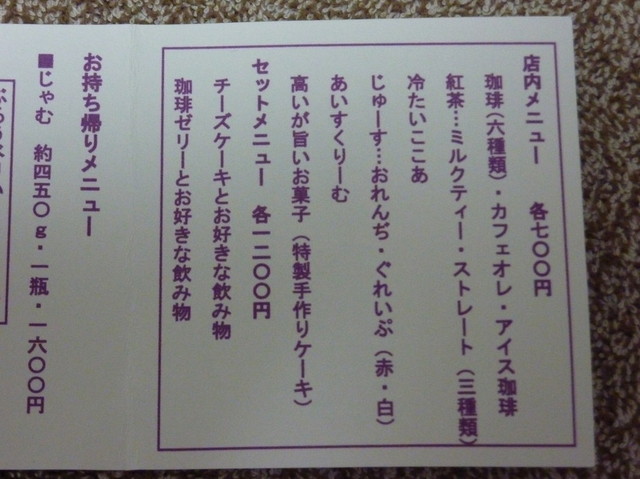 店内メニュー　各七〇〇円
珈琲(六種類)・カフェオレ・アイス珈琲
紅茶…ミルクティー・ストレート(三種類)
冷たいここあ
じゅーす…おれんぢ・ぐれいぷ(赤・白)
あいすくりーむ
高いが旨いお菓子(特製手作りケーキ)
セットメニュー　各一二〇〇円
チーズケーキとお好きな飲み物
珈琲ゼリーとお好きな飲み物
お持ち帰りメニュー
■じゃむ　約四五〇g・一瓶・一六〇〇円